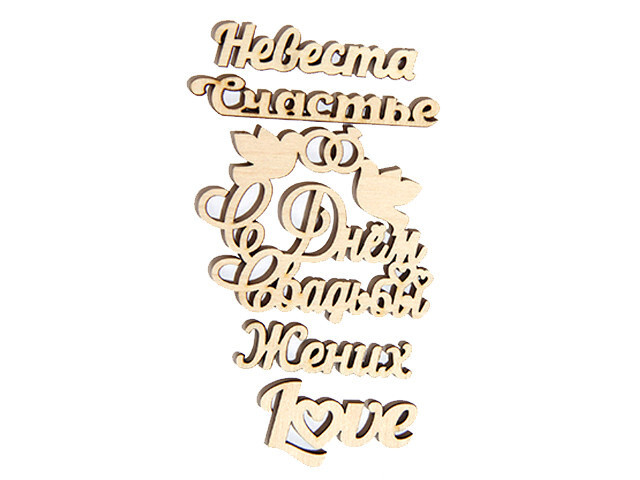 Невеста
Счастье
С Днём
Свадьбы
Жених
Love